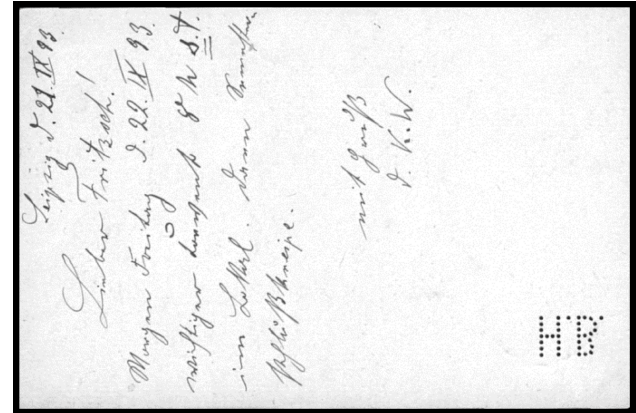 Leipzig d. 21. IX 93.
Lieber Fritzsch!
Morgen Freitag d 22. IX 93
wichtiger Convent 8 h s.t.
im Lokal. Dann Semester
schlußkneipe.
mit Gruß
d. K. W.
HB